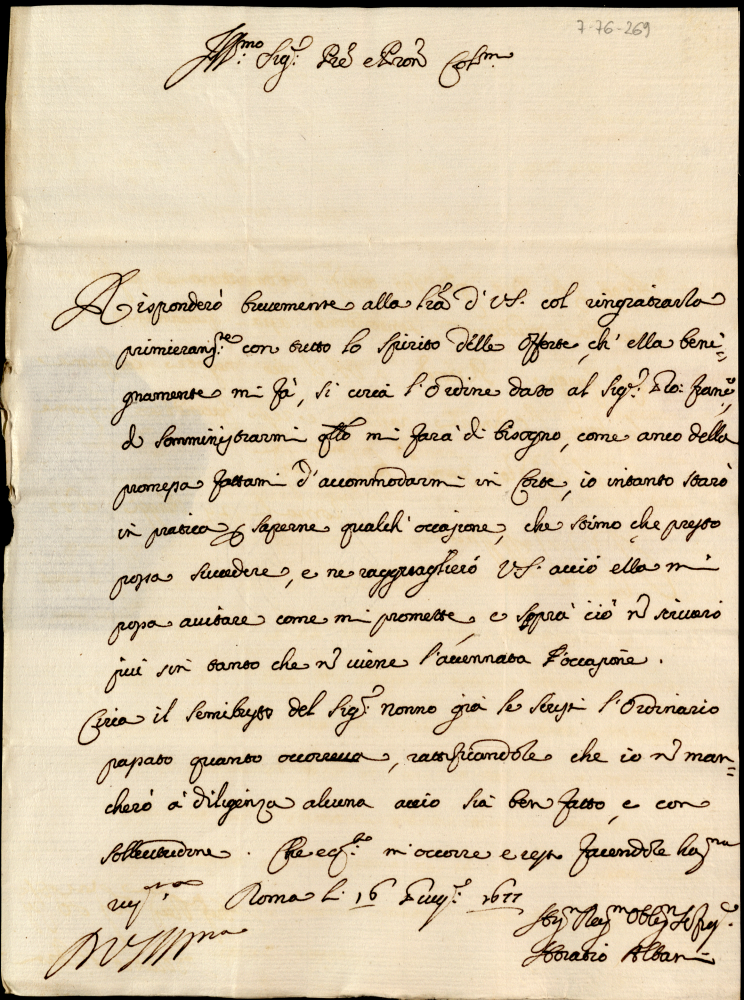 7-76-269
Ill.mo Sig.r Prē e Pron Col.mo
Risponderò brevemente alla lrā d'VS. col ringratiarla
primieram.te con tutto lo spirito delle offerte, ch'ella beni=
gnamente mi fà, si circa l'Ordine dato al Sig.r Gio: Franc.o
di somministrarmi q.llo mi farà di bisogno, come anco della
promessa fattami d'accommodarmi in Corte, io intanto starò
in pratica p saperne qualch'occasione, che stimo che presto
possa succedere, e ne ragguagliarò VS. acciò ella mi
possa aiutare come mi promette, e sopra ciò nō scriverò
più sin tanto che nō viene l'accennata l'occasione.
Circa il semibusto del Sig.r nonno già le scrissi l'Ordinario
passato quanto occorreva, ratificandole che io nō man=
cherò à diligenza alcuna acciò sia ben fatto, e con
sollecitudine. Che è q.to m'occorre e resto facendole hu.ma
riv.za Roma li 16 1677
D VS Ill.ma
Horatio Albani